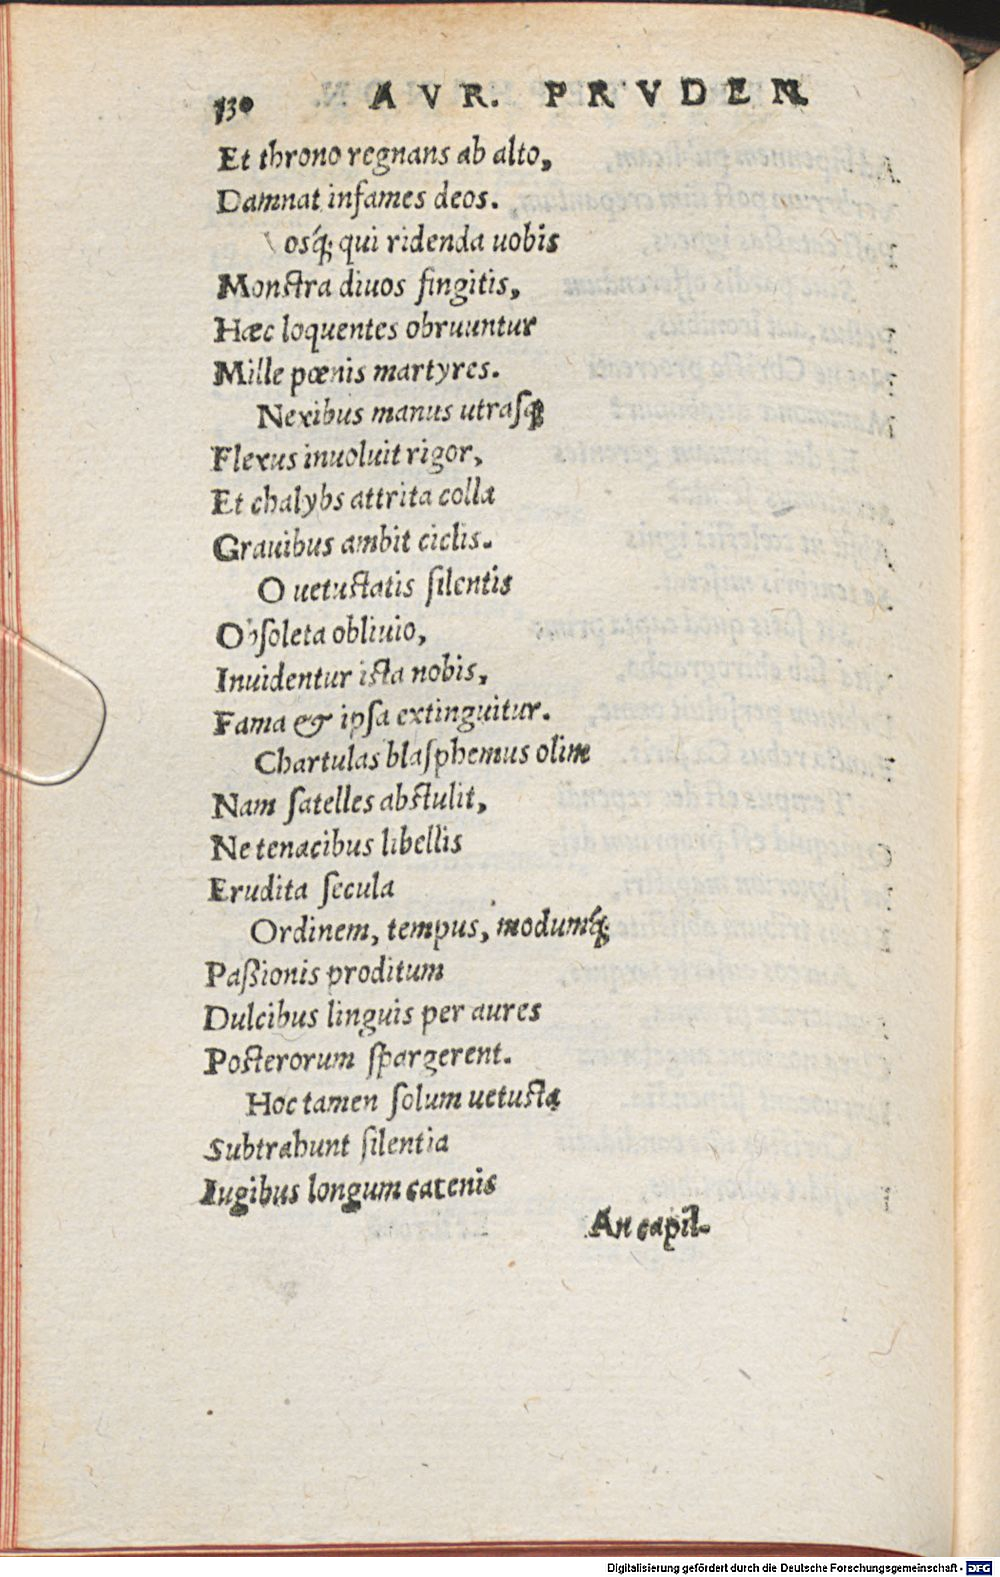 130 AVR. PRVDEN.
Et throno regnans ab alto,
Damnat infames deos.
osq́; qui ridenda uobis
Monstra diuos fingitis,
Hæc loquentes obruuntur
Mille pœnis martyres.
Nexibus manus utrasq;
Flexus inuoluit rigor,
Et chalybs attrita colla
Grauibus ambit ciclis.
O uetustatis silentis
Obsoleta obliuio,
Inuidentur ista nobis,
Fama & ipsa extinguitur.
Chartulas blasphemus olim
Nam satelles abstulit,
Ne tenacibus libellis
Erudita secula
Ordinem, tempus, modumq́;
Paßionis proditum
Dulcibus linguis per aures
Posterorum spargerent.
Hoc tamen solum uetusta
Subtrahunt silentia
Iugibus longum catenis
An capil-
Digitalisierung gefördert durch die Deutsche Forschungsgemeinschaft - DFG